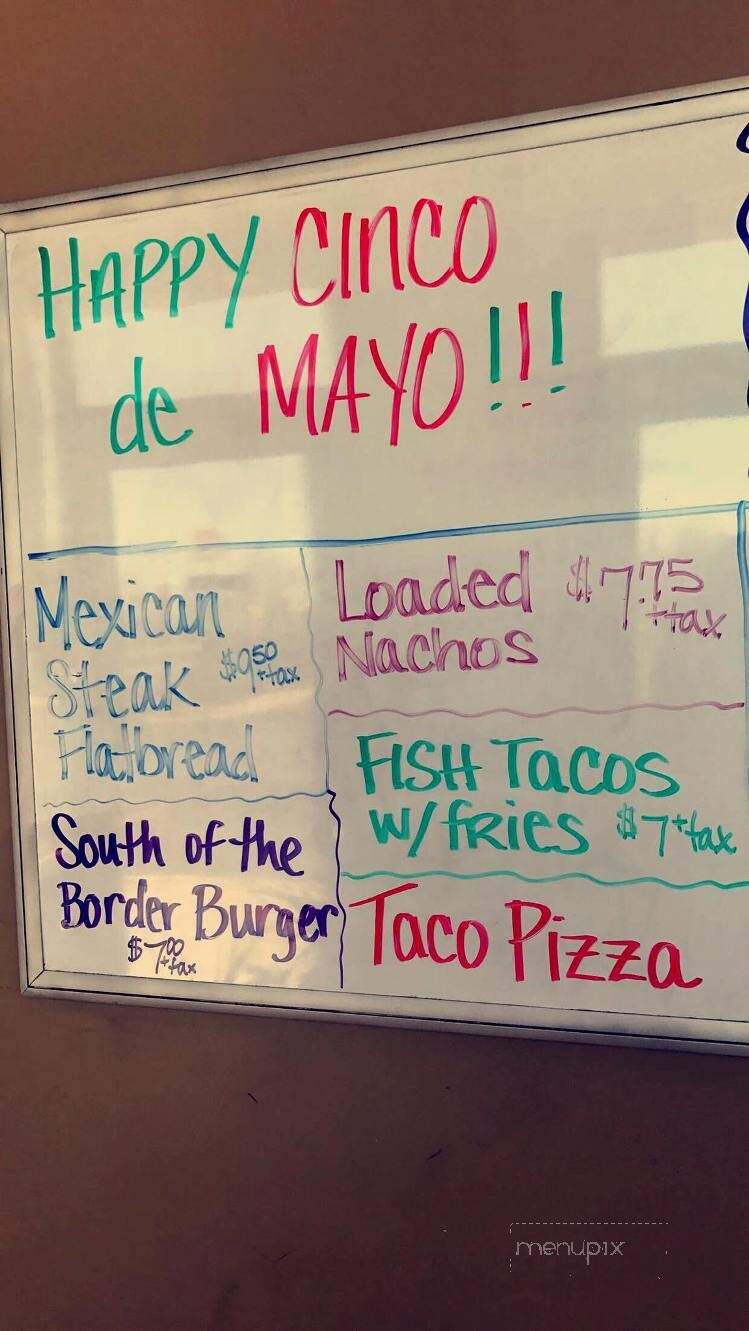 HAPPY CINCO
de MAYO!!!
Mexican
Steak $9.50 + tax
Flatbread
Loaded $7.75 + tax
Nachos
South of the
Border Burger
$7.00 + tax
FISH TACOS
w/fries $7 + tax
Taco Pizza
menupix